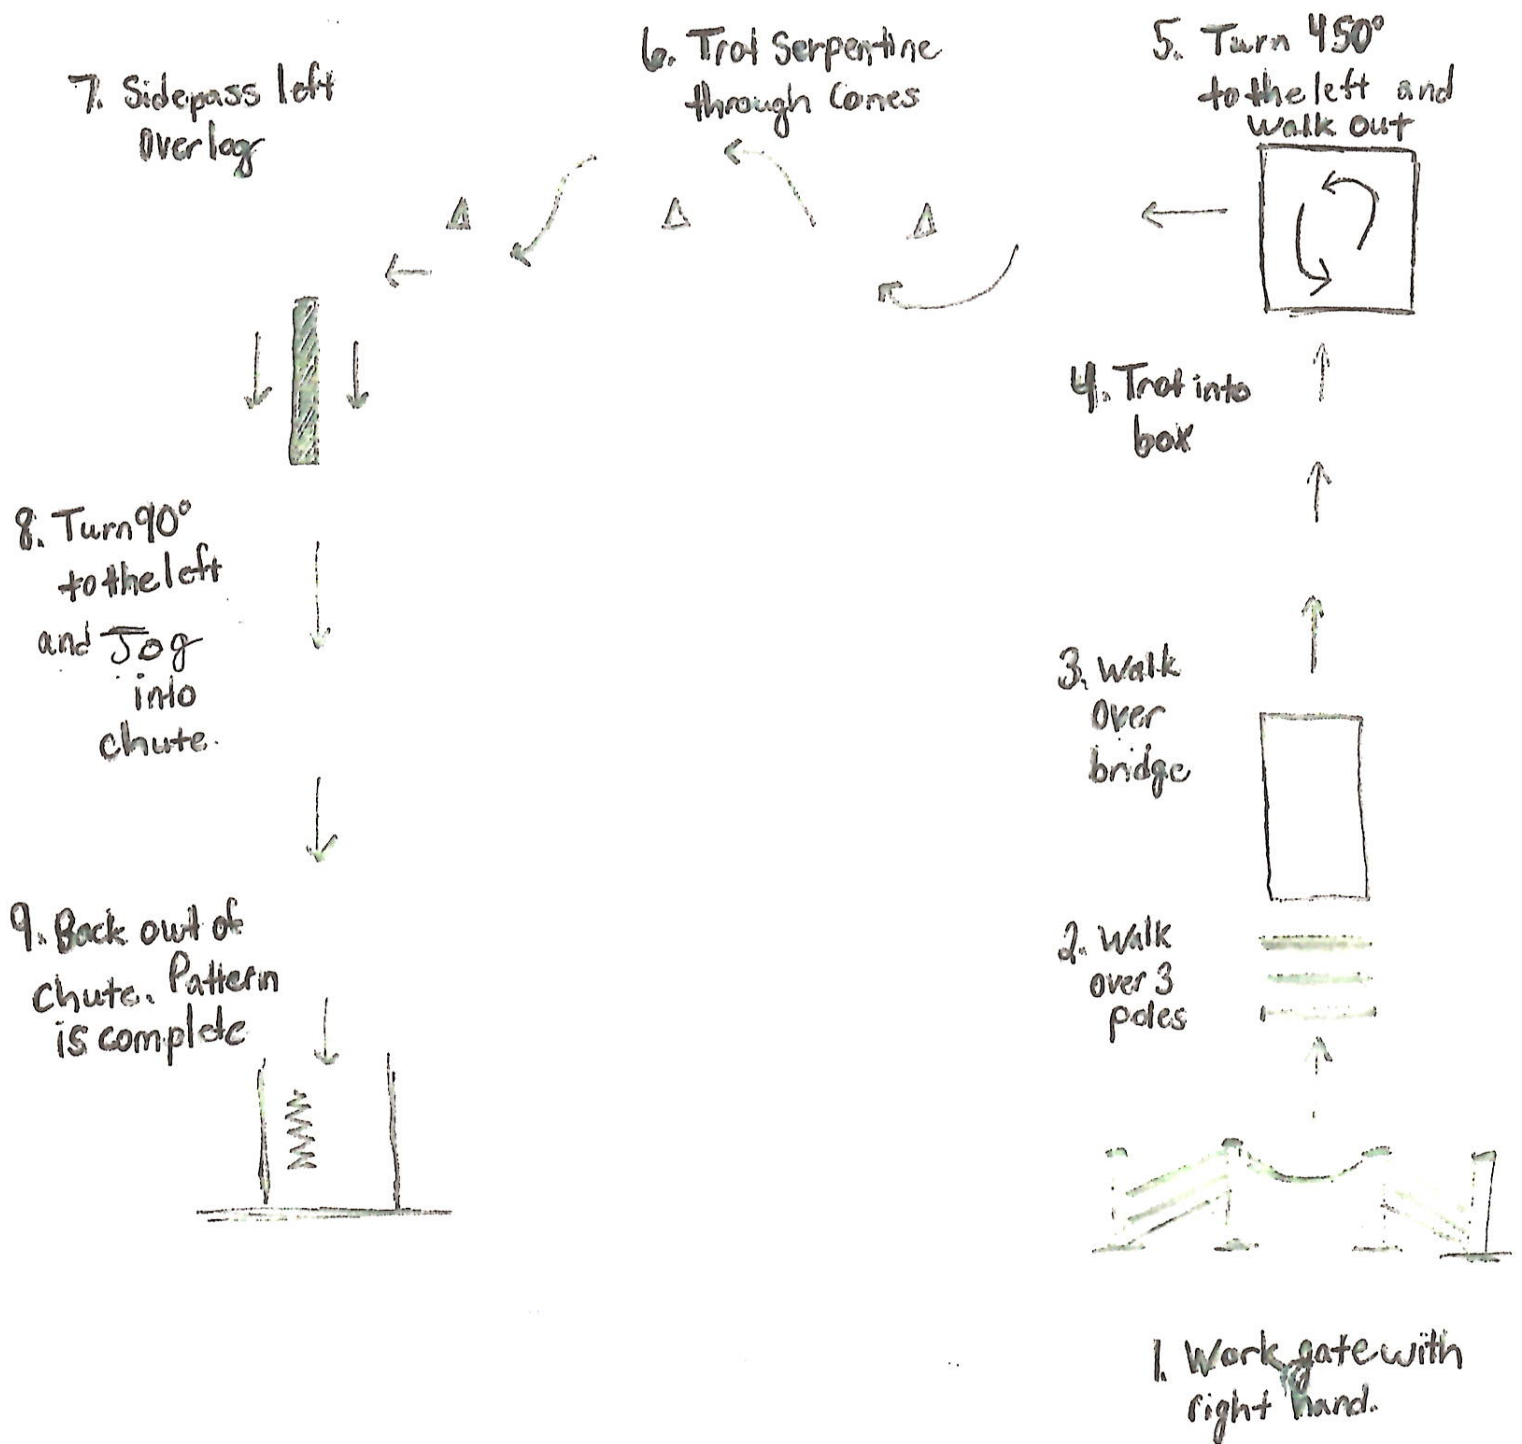 7. Sidepass left
over log
6. Trot Serpentine
through Cones
5. Turn 450°
to the left and
walk out
4. Trot into
box
3. Walk
over
bridge
2. Walk
over 3
poles
1. Work gate with
right hand.
8. Turn 90°
to the left
and Jog
into
chute.
9. Back out of
chute. Pattern
is complete